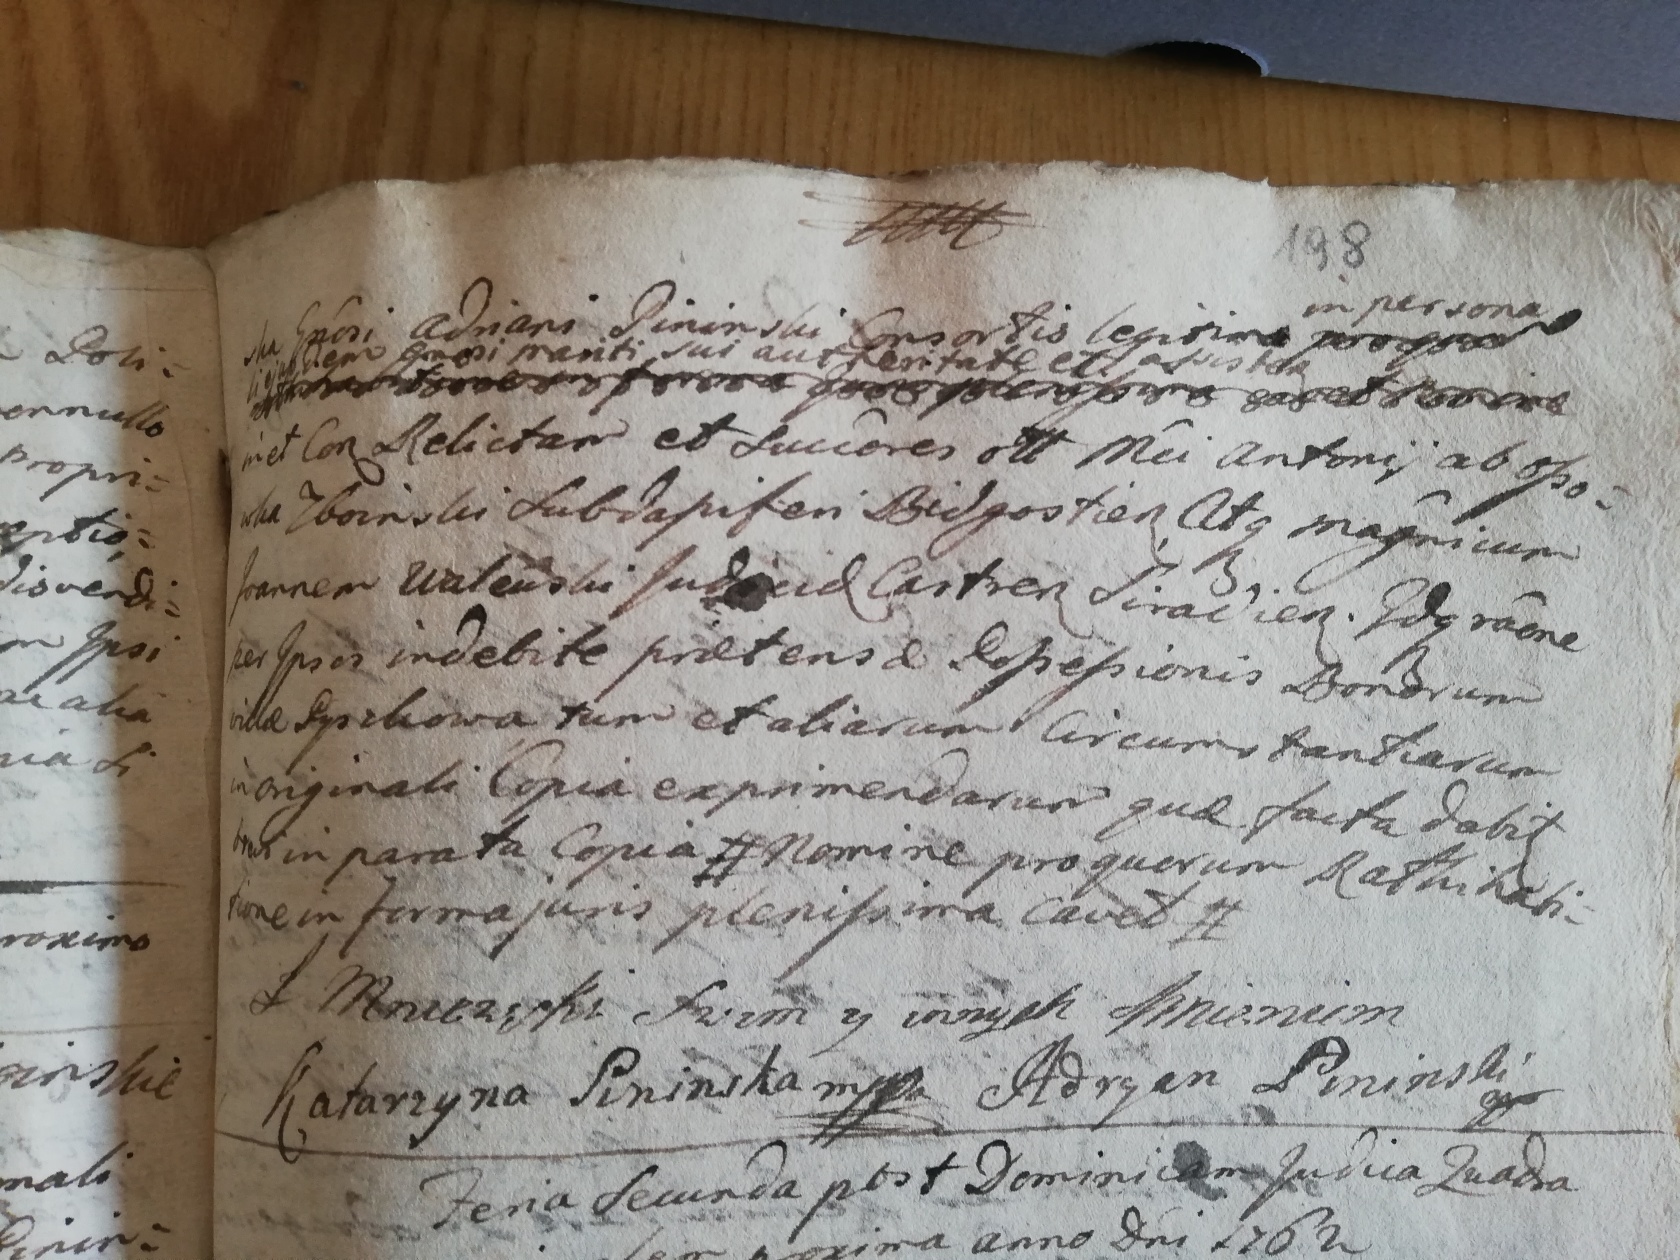 198
in persona
ska Gnosi Adriani Pininski Consortis legitima
ejusdem gnosi mariti sui authoritate et assisten
met Con Relictam et Succores olt Mci Antonij ab Oso=
wka Zboinski Subdapiferi Bidgostien Atq magnicum
Joannem Walewski Judicem Castren Siradien. Idq raone
per Ipsos indebite prætensæ Possessionis Bonorum
villæ Lyszkowa tum et aliarum Circumstantiarum
in originali Copia exprimendarum quæ facta dabit
in parata Copia # Nomine pro quorum Rathihabi=
tione in forma juris plenissima cavet #
Swem y innych Imieniem
Katarzyna Pininska mppa Adryan Pininski
Feria Secunda post Dominicam Judica Quadra
proxima anno Dni 1762
Poli=
nonnullo
Propri=
eptio=
disvendi=
m Ipsi
ac alia
nia Si
roximo
oinskie
mali
Pinin=